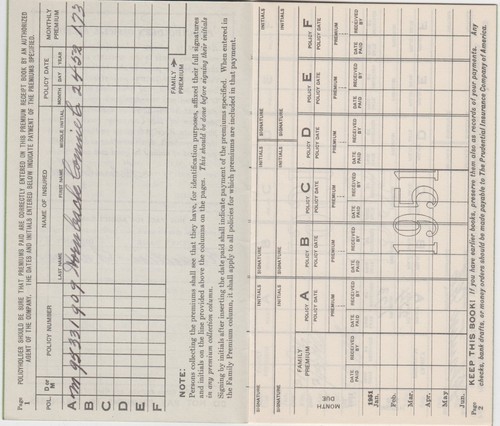 Page 1
POLICYHOLDER SHOULD BE SURE THAT PREMIUMS PAID ARE CORRECTLY ENTERED ON THIS PREMIUM RECEIPT BOOK BY AN AUTHORIZED
AGENT OF THE COMPANY. THE DATES AND INITIALS ENTERED BELOW INDICATE PAYMENT OF THE PREMIUMS SPECIFIED.
POL. D or M POLICY NUMBER NAME OF INSURED POLICY DATE MONTHLY PREMIUM
LAST NAME FIRST NAME MIDDLE INITIAL MONTH DAY YEAR
A M 95331909 2 4 52 1 73
B
C
D
E
F
FAMILY PREMIUM
NOTE:
Persons collecting the premiums shall see that they have, for identification purposes, affixed their full signatures
and initials on the line provided above the columns on the pages. This should be done before signing their initials
in any premium collection column.
Signing by initials after inserting the date paid shall indicate payment of the premiums specified. When entered in
the Family Premium column, it shall apply to all policies for which premiums are included in that payment.
SIGNATURE INITIALS SIGNATURE INITIALS SIGNATURE INITIALS SIGNATURE INITIALS
SIGNATURE INITIALS SIGNATURE INITIALS SIGNATURE INITIALS
MONTH DUE
FAMILY PREMIUM
POLICY A POLICY DATE PREMIUM
POLICY B POLICY DATE PREMIUM
POLICY C POLICY DATE PREMIUM
POLICY D POLICY DATE PREMIUM
POLICY E POLICY DATE PREMIUM
POLICY F POLICY DATE PREMIUM
DATE PAID RECEIVED BY DATE PAID RECEIVED BY DATE PAID RECEIVED BY DATE PAID RECEIVED BY DATE PAID RECEIVED BY DATE PAID RECEIVED BY DATE PAID RECEIVED BY
1951
1951
Jan.
Feb.
Mar.
Apr.
May
Jun.
Page 2
KEEP THIS BOOK! If you have earlier books, preserve them also as records of your payments. Any
checks, bank drafts, or money orders should be made payable to The Prudential Insurance Company of America.